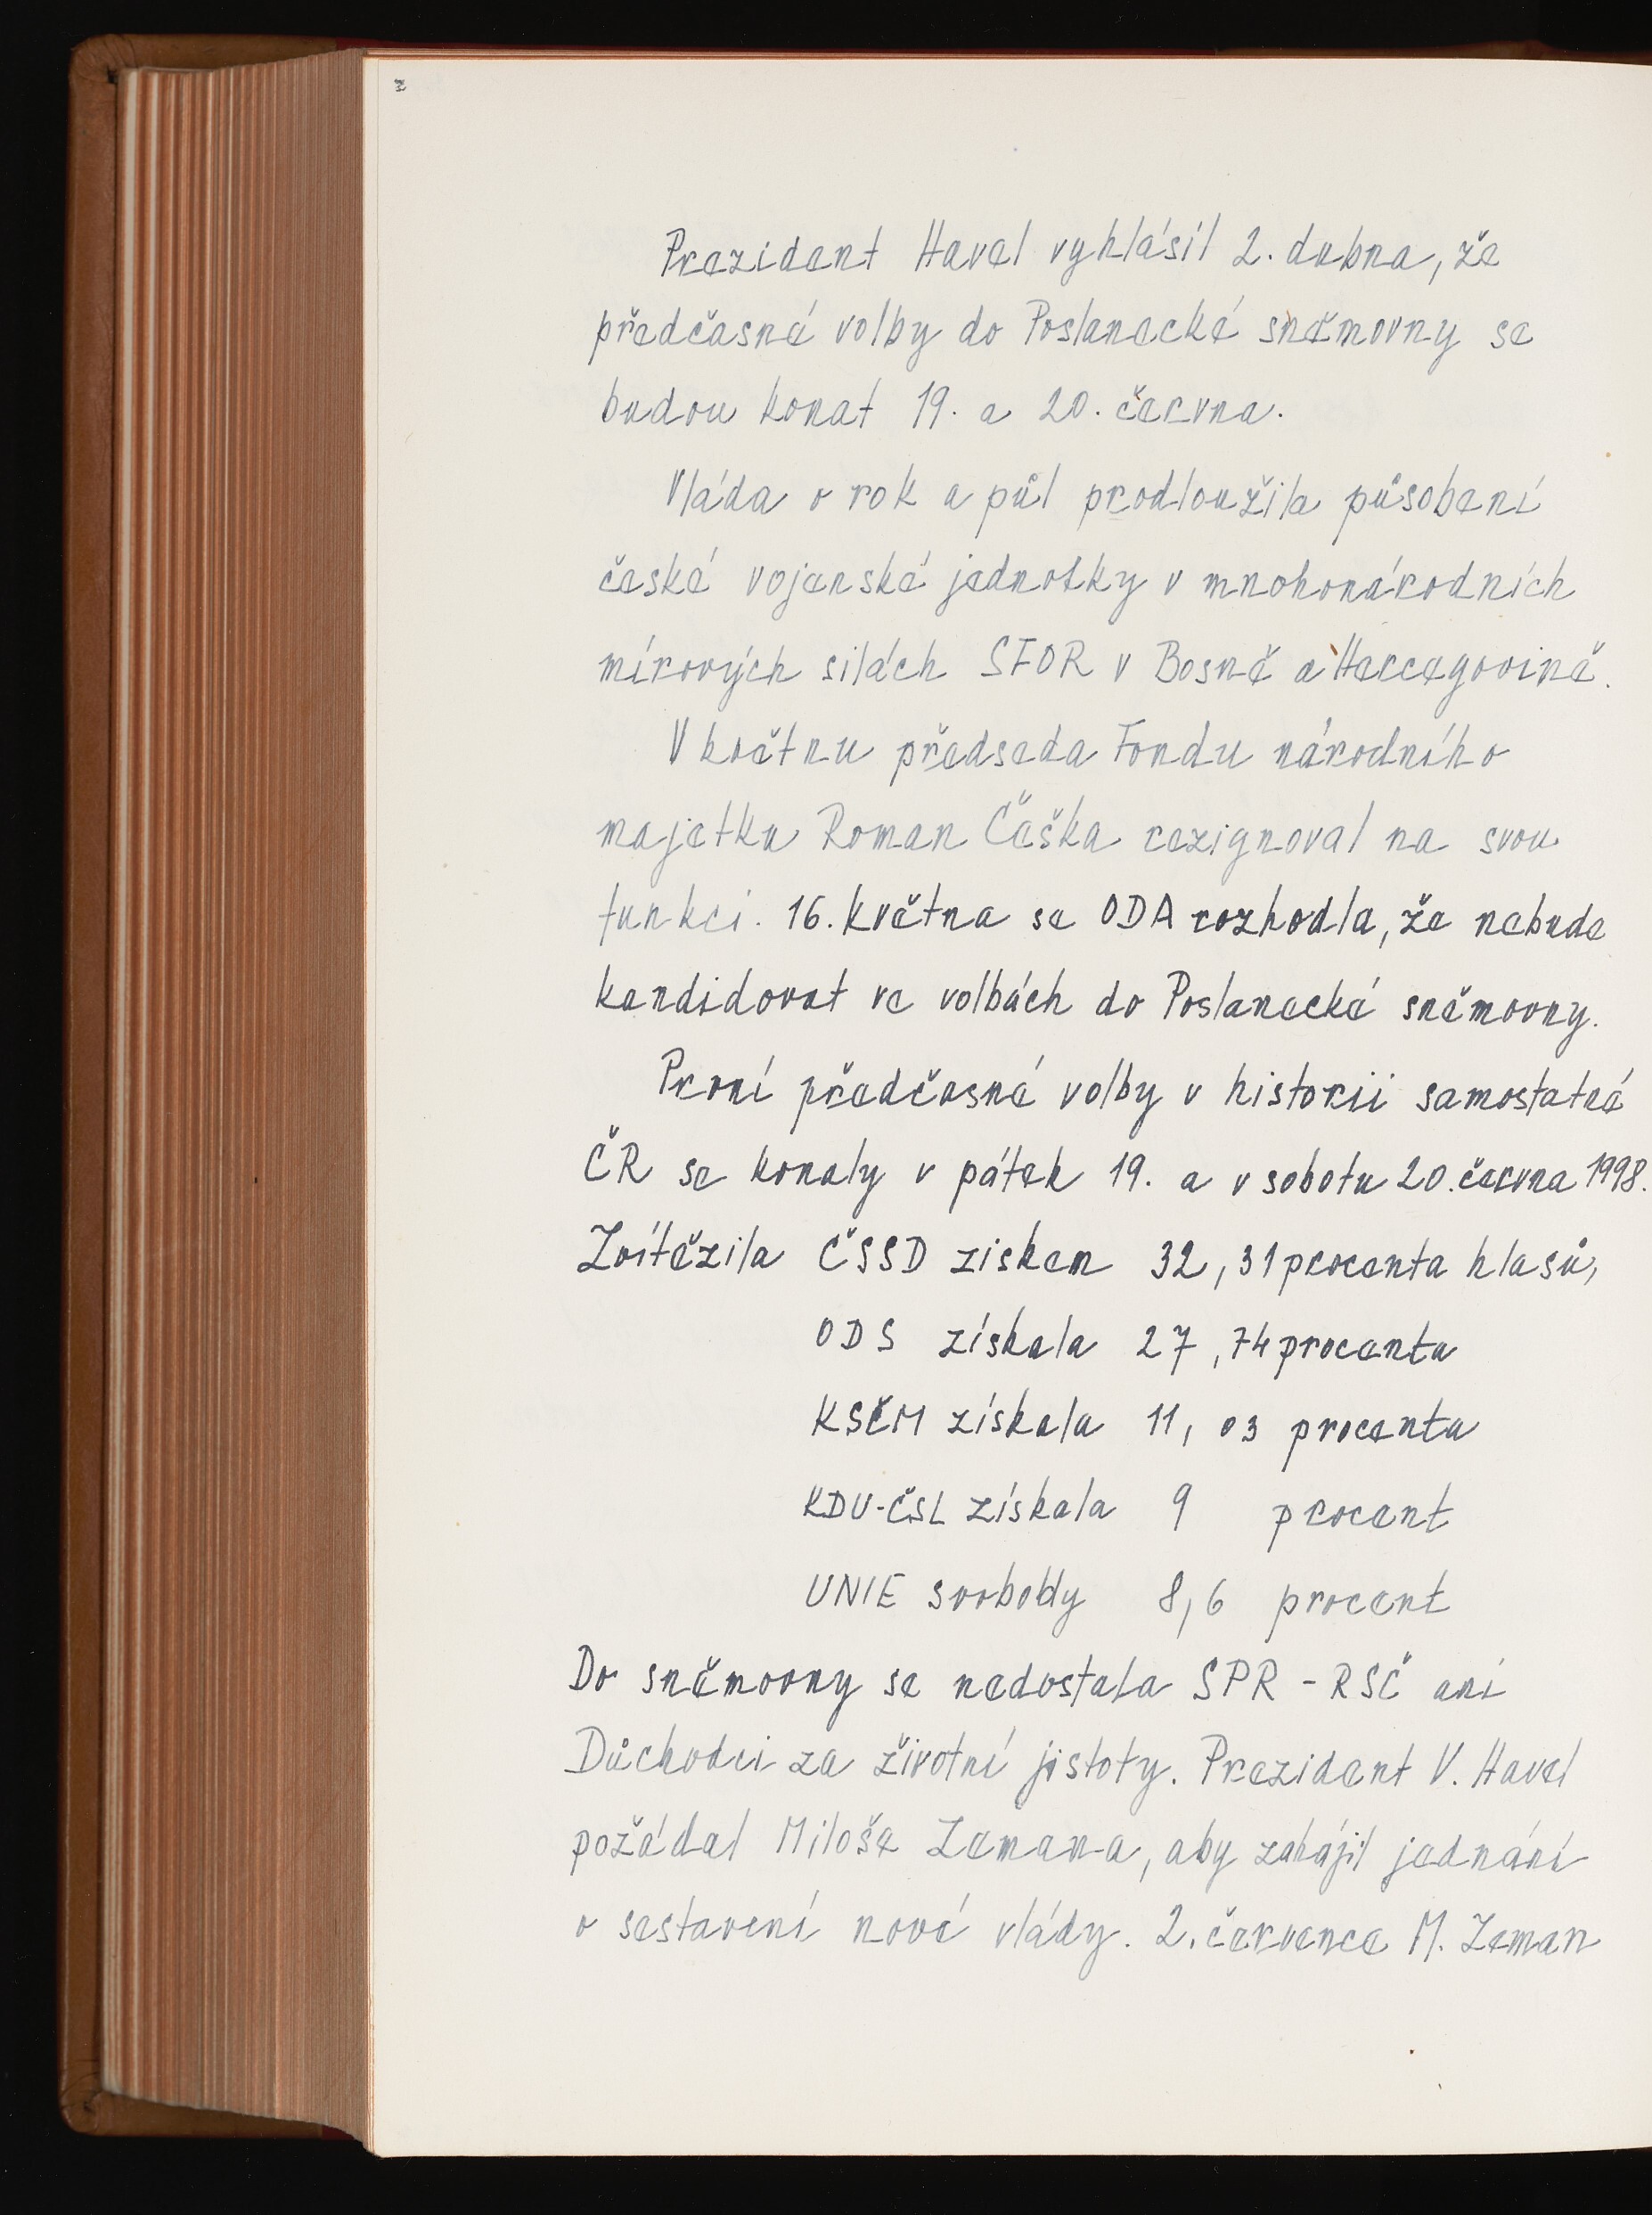 Prezident Havel vyhlásil 2. dubna, že
předčasné volby do Poslanecké sněmovny se
budou konat 19. a 20. června.
Vláda o rok a půl prodloužila působení
české vojenské jednotky v mnohonárodních
mírových silách SFOR v Bosně a Hercegovině.
V květnu předseda Fondu národního
majetku Roman Češka rezignoval na svou
funkci. 16. května se ODA rozhodla, že nebude
kandidovat ve volbách do Poslanecké sněmovny.
První předčasné volby v historii samostatné
ČR se konaly v pátek 19. a v sobotu 20. června 1998.
Zvítězila ČSSD ziskem 32,31 procenta hlasů,
ODS získala 27,74 procenta
KSČM získala 11,03 procenta
KDU-ČSL získala 9 procent
UNIE svobody 8,6 procent
Do sněmovny se nedostala SPR - RSČ ani
Důchodci za životní jistoty. Prezident V. Havel
požádal Miloše Zemana, aby zahájil jednání
o sestavení nové vlády. 2. července M. Zeman